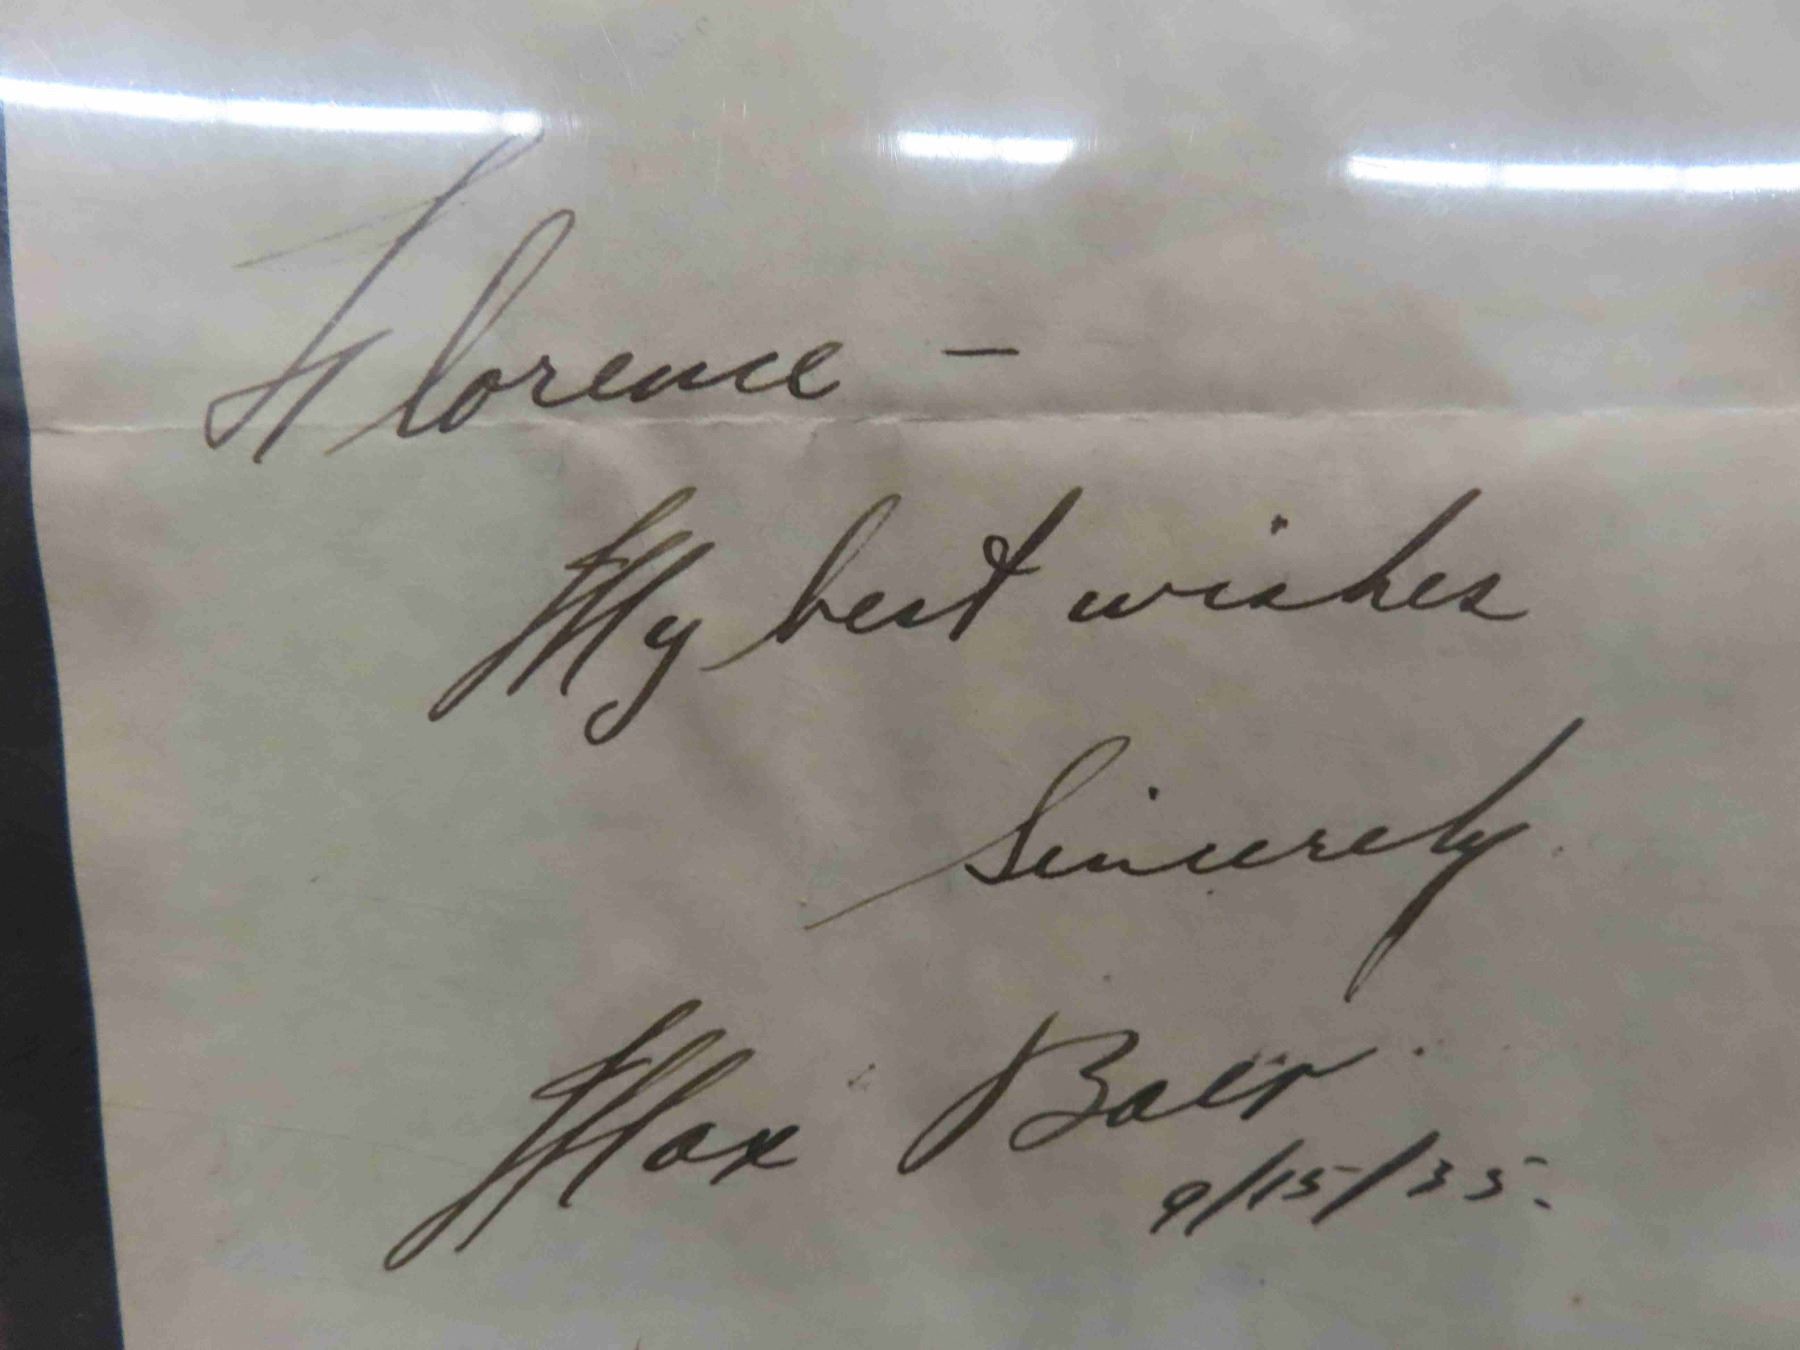 Florence –
My best wishes
Sincerely
Max Baer
9/15/35.